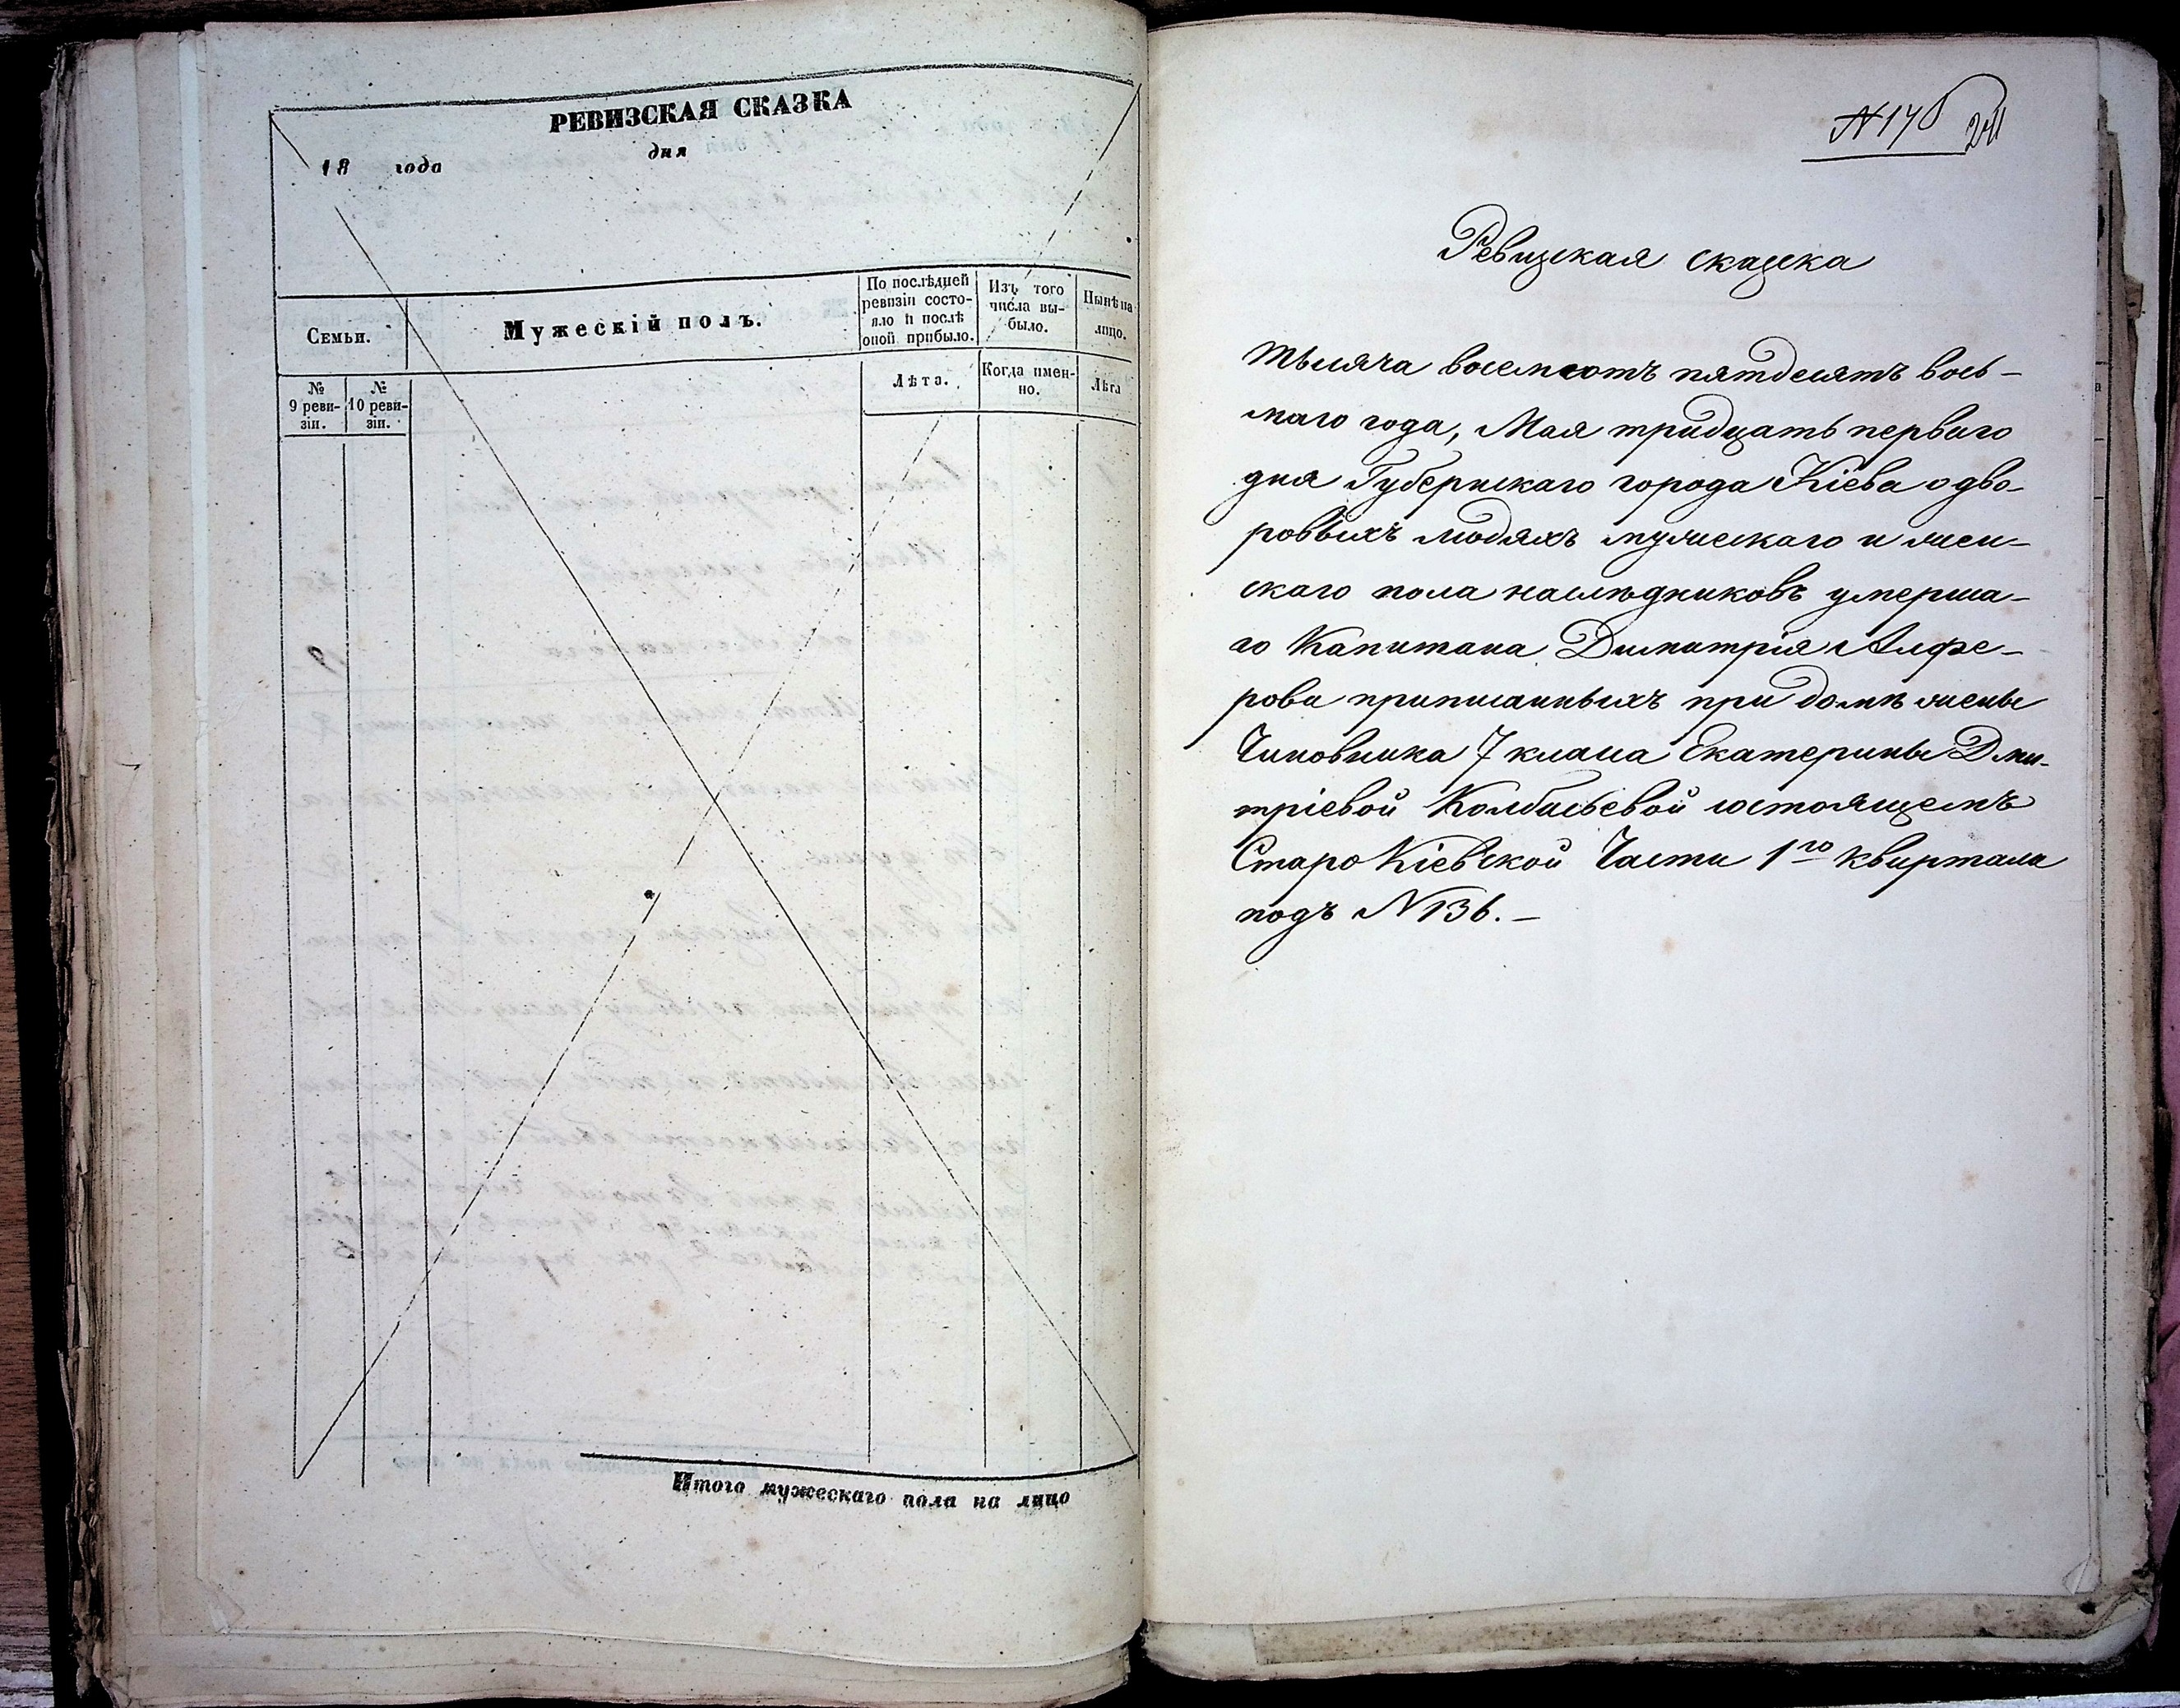 РЕВИЗСКАЯ СКАЗКА
18 года дня
Семьи.
Мужескій полъ.
По послѣдней ревизіи состо-
яло и послѣ
оной прибыло.
Изъ того
числа вы-
было.
Нынѣ на
лицо.
№
9 реви-
зіи.
№
10 реви-
зіи.
Лѣта.
Когда имен-
но.
Лѣта
Итого мужескаго пола на лицо
Ревизская сказка
тысяча восемсотъ пятдесятъ вось-
маго года, Мая тридцать перваго
дня Губернскаго города Кіева о дво-
ровыхъ людяхъ мужескаго и жен-
скаго пола наслѣдниковъ умерша-
го Капитана Диматрія Алфе-
рова приписанныхъ при домѣ жены
Чиновника 7 класа Екатерины Дми-
тріевой Колбасьевой состоящемъ
Старо Кіевской Части 1го квартала
подъ N 136.-